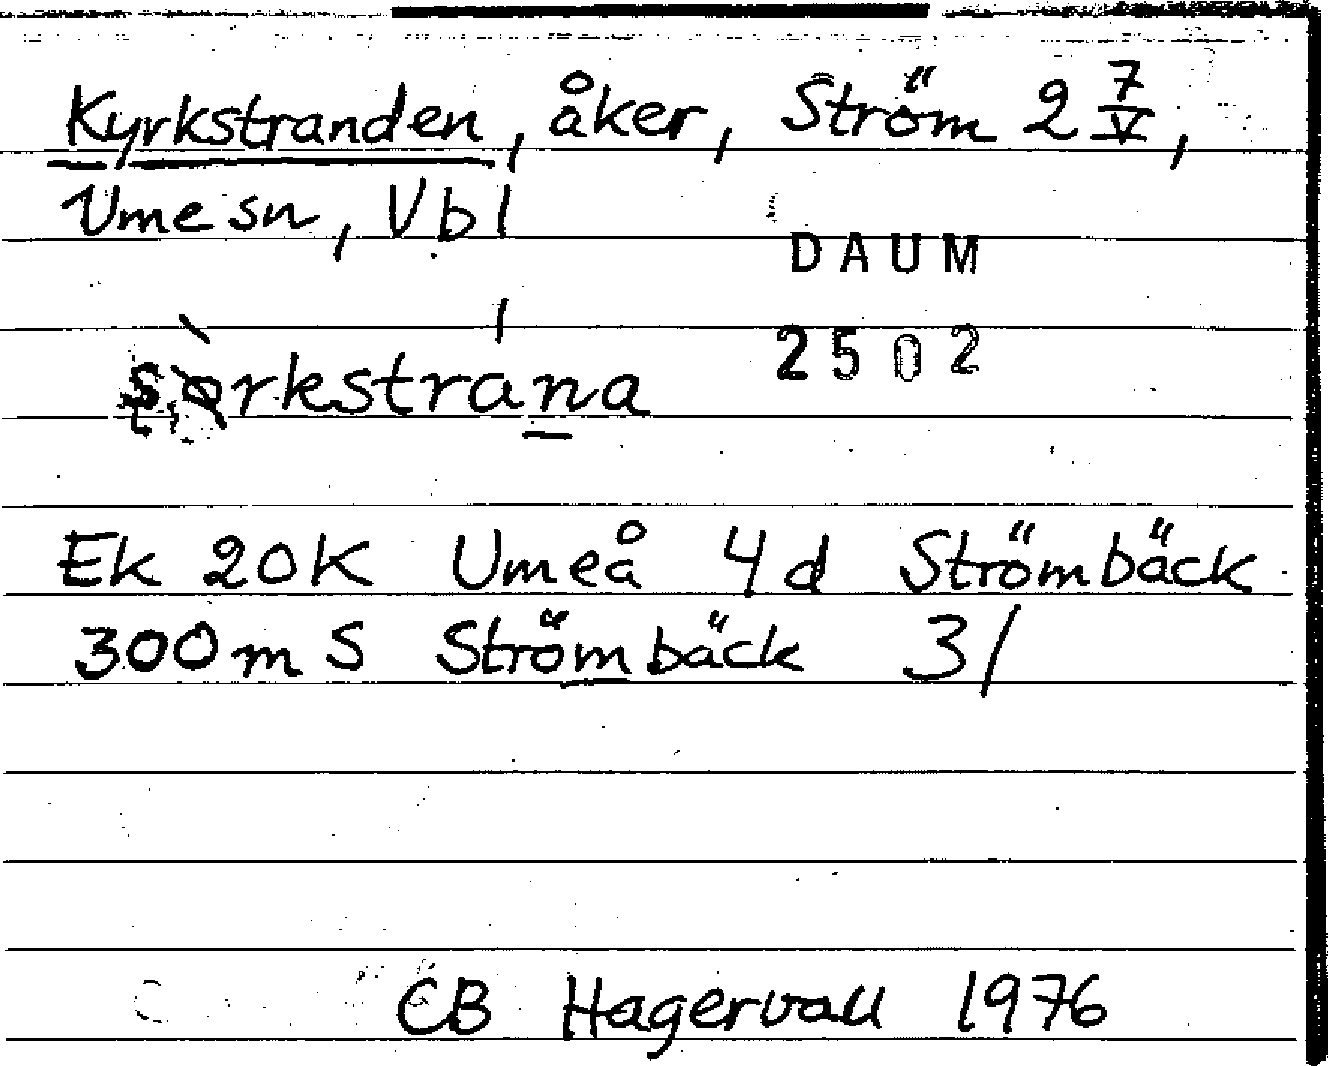 Kyrkstranden, åker, Ström 2 7/V,
Umesn, Vbl
DAUM
2502
Ek 20K Umeå 4d Strömbäck
300m S Strömbäck 3/
CB Hagervall 1976